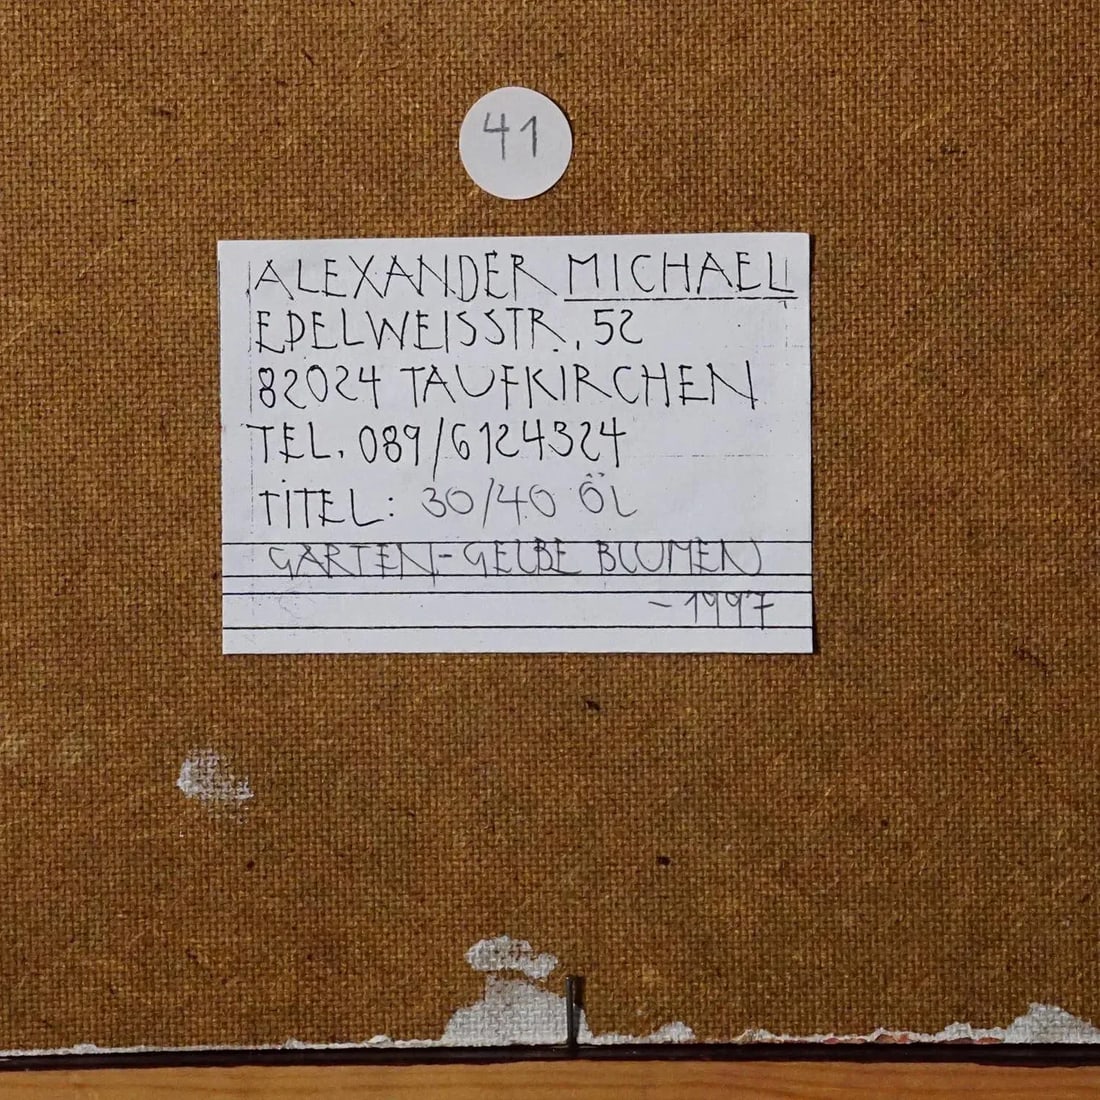 41
ALEXANDER MICHAEL
EDELWEISSTR. 52
82024 TAUFKIRCHEN
TEL. 089/6124324
TITEL: 30/40 ÖL
GARTEN-GELBE BLUMEN
- 1997